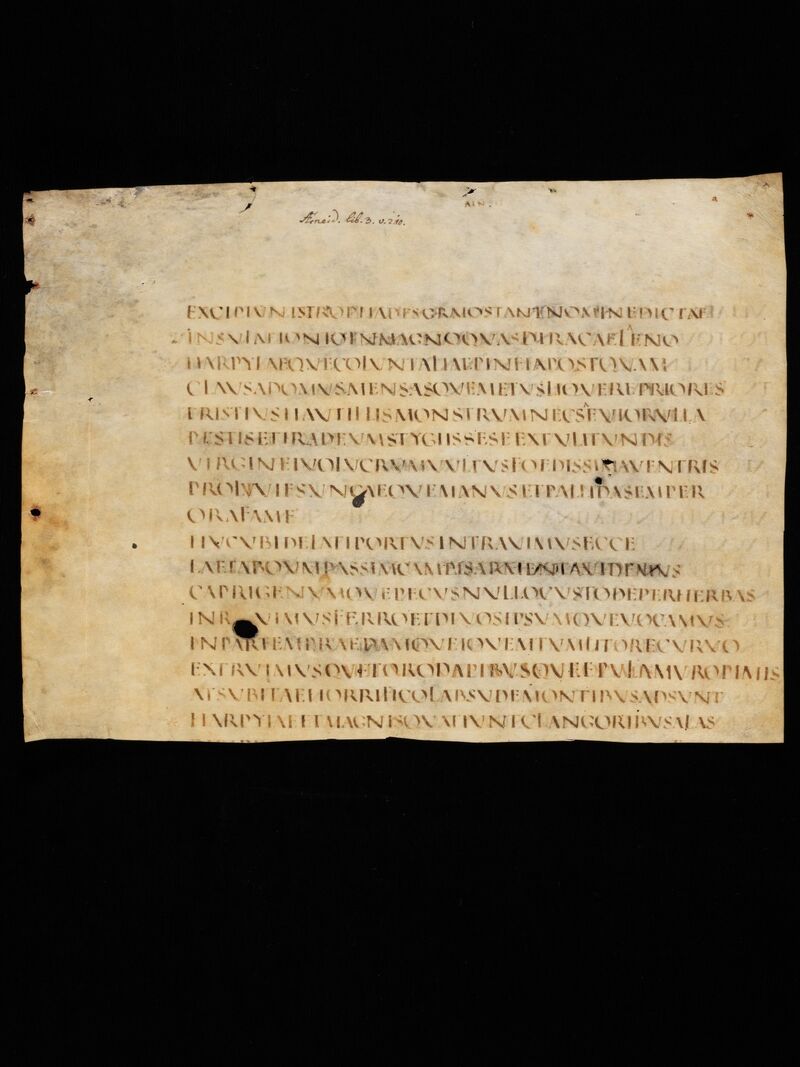 Aeneid. lib. 3. v. 210.
AEN.
EXCIPIVNTSTROPHADESGRAIOSTANTNOMINEDICTAE
INSVLAEIONIOINMAGNOQVASDIRACAELENO
HARPYIAEQVECOLVNTALIAEPINEIAPOSTQVAM
CLAVSADOMVSMENSASQVEMETVSLIQVEREPRIORES
TRISTIVSHAVTILLISMONSTRVMNECSEVIORVLLA
PESTISETIRADEVMSTYGIISSESEEXTVLITVNDIS
VIRGINEIVOLVCRVMVVLTVSFOEDISSIMAVENTRIS
PROLVVIESVNCAEQVEMANVSETPALLIDASEMPER
ORAFAME
HVCVBIDELATIPORTVSINTRAVIMVSECCE
LAETABOVMPASSIMCAMPISARMENTAVIDEMVS
CAPRIGENVMQVEPECVSNVLLOCVSTODEPERHERBAS
INRVIMVSFERROETDIVOSIPSVMQVEVOCAMVS
INPARTEMPRAEDAMQVEIOVEMTVMLITORECVRVO
EXTRVIMVSQVETORODAPIBVSQVEETPVLAMVROPIMIS
ATSVBITAEHORRIFICOLAPSVDEMONTIBVSADSVNT
HARPYIAEETMAGNISQVATIVNTCLANGORIBVSALAS